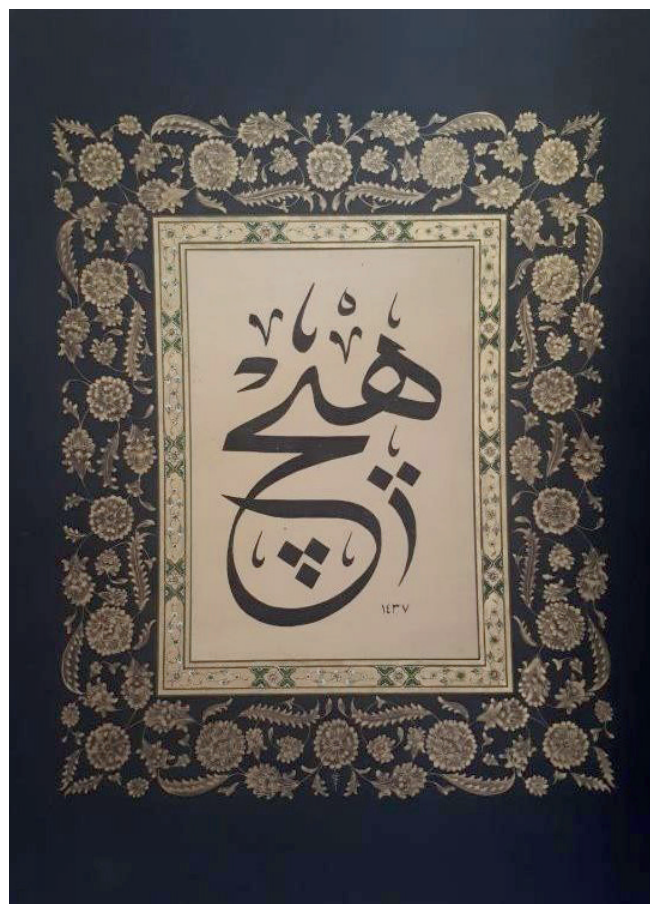 هيچ
١٤٣٧